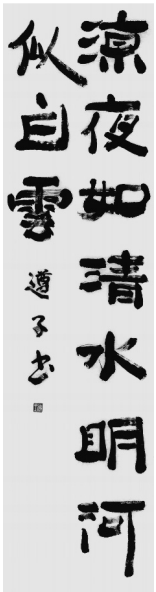 涼夜如清水明河
似白雲
遵子书